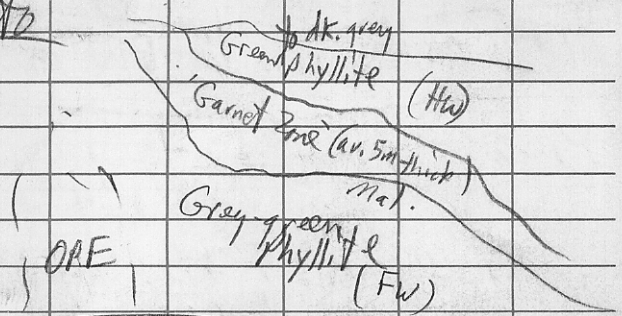 to dk. grey
Green phyllite
(HW)
'Garnet Zone' (av. 5m thick)
Mal.
Grey-green
phyllite
(FW)
ORE